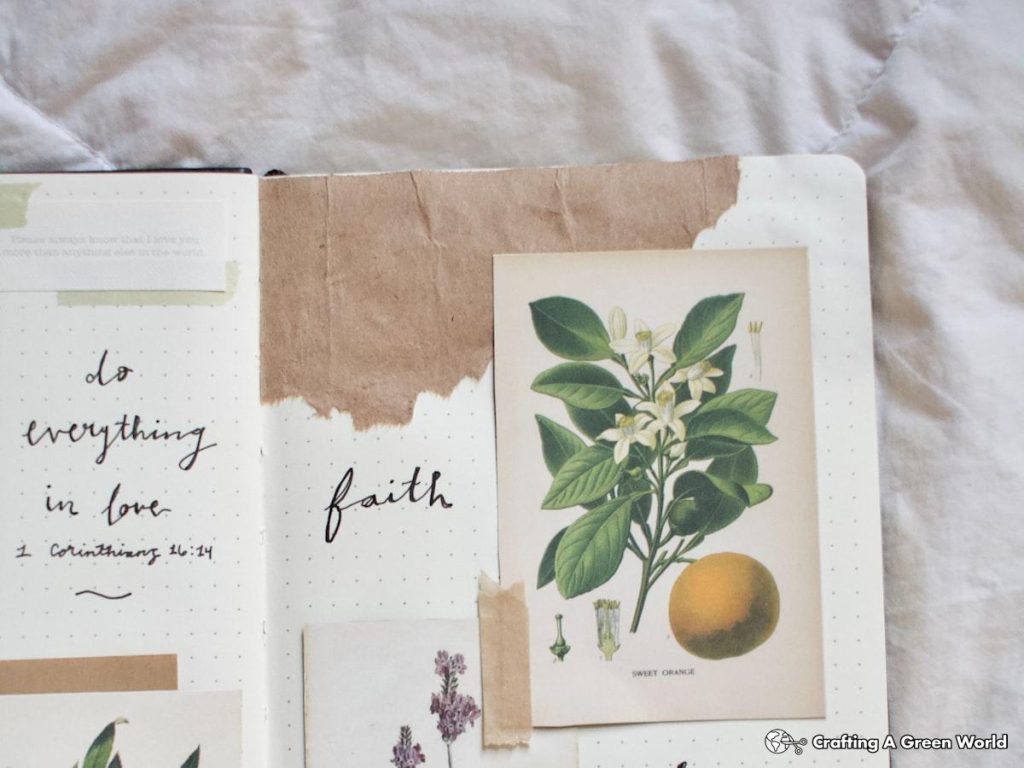 Please always know that I love you
more than anything else in the world.
do
everything
in love
1 Corinthians 16:14
faith
SWEET ORANGE
Crafting A Green World